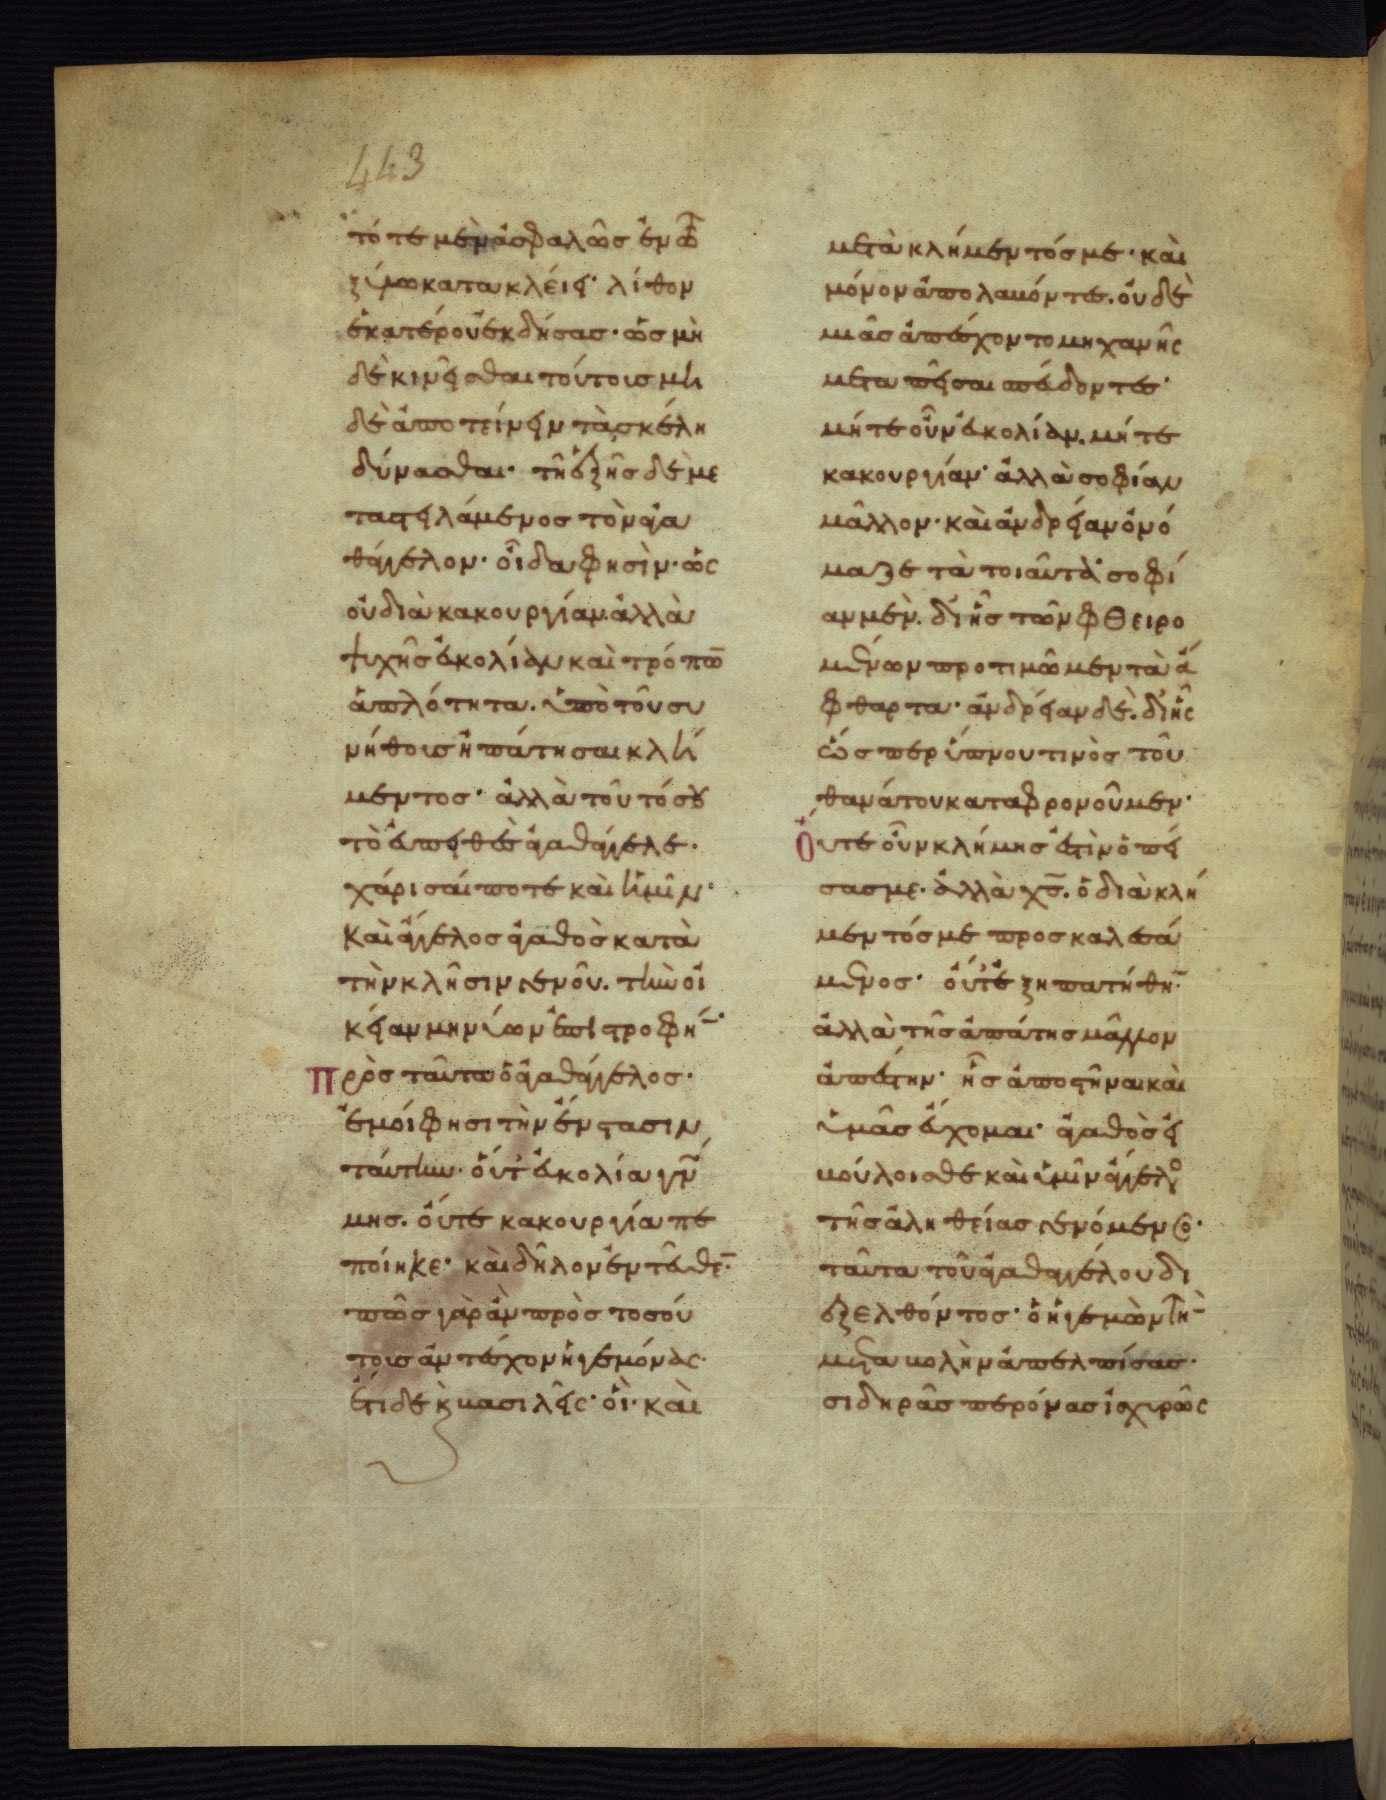 443
τότε μὲν ἀσφαλῶς ἐν τῶ
ξύλω κατακλείει· λίθον
ἑκατέρου ἐκδήσας· ὡς μὴ
δὲ κινεῖσθαι τούτοις μη
δὲ ἀποτείνειν τὰ σκέλη
δύνασθαι· τῆ ἑξῆς δὲ με
ταστειλάμενος τὸν ἀγα
θάγγελον· οἶδα φησὶν· ὡς
οὐ διὰ κακουργίαν. ἀλλὰ
ψυχῆς εὐκολίαν καὶ τρόπω̅
ἁπλότητα. ὑπὸ τοῦ συ
νήθους ἠπάτησαι κλή
μεντος· ἀλλὰ τοῦτό σου
τὸ εὐπειθὲς ἀγαθάγγελε·
χάρισαί ποτε καὶ ἡμῖν·
Καὶ ἄγγελος ἀγαθὸς κατὰ
τὴν κλῆσιν γενοῦ. τὴν οἰ
κείαν μηνύων ἐπιστροφή̅·
Πρὸς ταῦτα ὁ ἀγαθάγγελος·
ἐμοί φησι τὴν ἔνστασιν
ταύτην· οὔτ' εὐκολία γνώ
μης. οὔτε κακουργία πε
ποίηκε· καὶ δῆλον ἐντεῦθε̅·
πῶς γὰρ ἂν πρὸς τοσού
τους ἀντέσχον ἡγεμόνας·
ἔτι δὲ κ βασιλεῖς· οἳ· καὶ
μετὰ κλήμεντός με· καὶ
μόνον ἀπολαβόντες. οὐδὲ
μιᾶς ἀπέσχοντο μηχανῆς
μεταπεῖσαι σπεύδοντες·
μήτε οὖν εὐκολίαν. μήτε
κακουργίαν· ἀλλὰ σοφίαν
μᾶλλον· καὶ ἀνδρείαν ὀνό
μαζε τὰ τοιαῦτα· σοφί
αν μὲν. δι' ἧς τῶν φθειρο
μένων προτιμῶμεν τὰ ἄ
φθαρτα· ἀνδρείαν δὲ. δι' ἧς
ὥσπερ ὕπνου τινὸς τοῦ
θανάτου καταφρονοῦμεν·
Οὔτε οὖν κλήμης ἐστὶν ὁ πεί
σας με. ἀλλὰ χς̅. ὁ διὰ κλή
μεντός με προσκαλεσά
μενος· οὔτε ἐξηπατήθη̅·
ἀλλὰ τῆς ἀπάτης μᾶλλον
ἀπέστην· ἧς ἀποστῆναι καὶ
ὑμᾶς εὔχομαι· ἀγαθὸς εἰ
βούλοισθε καὶ ὑμῖν ἄγγελο
τῆς ἀληθείας γενόμενος·
ταῦτα τοῦ ἀγαθαγγέλου δι
εξελθόντος· ὁ ἡγεμὼν τὴ̅
μεταβολὴν ἀπελπίσας·
σιδηρᾶς περόνας ἰσχυρῶς